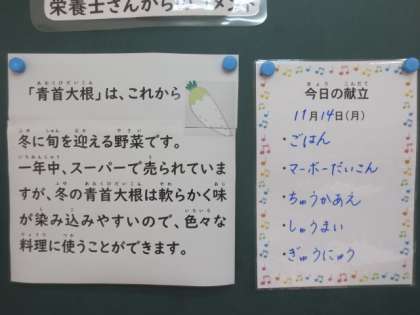 栄養士さんから
「青首大根」は、これから
冬に旬を迎える野菜です。
一年中、スーパーで売られていま
すが、冬の青首大根は軟らかく味
が染み込みやすいので、色々な
料理に使うことができます。
今日の献立
11月14日(月)
・ごはん
・マーボーだいこん
・ちゅうかあえ
・しゅうまい
・ぎゅうにゅう